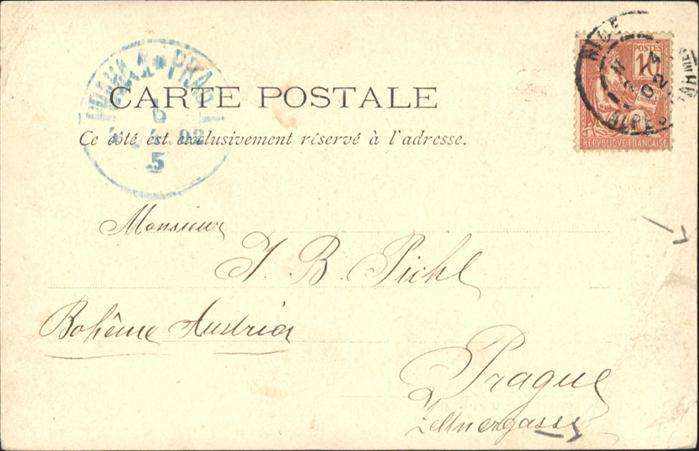 CARTE POSTALE
Ce côté est exclusivement réservé à l'adresse.
POSTES
10
RÉPUBLIQUE FRANÇAISE
NICE
02
ALPES
PRA
5
Monsieur
J. B. Pichl
Bohême Austria
Prague
Zeltnergasse